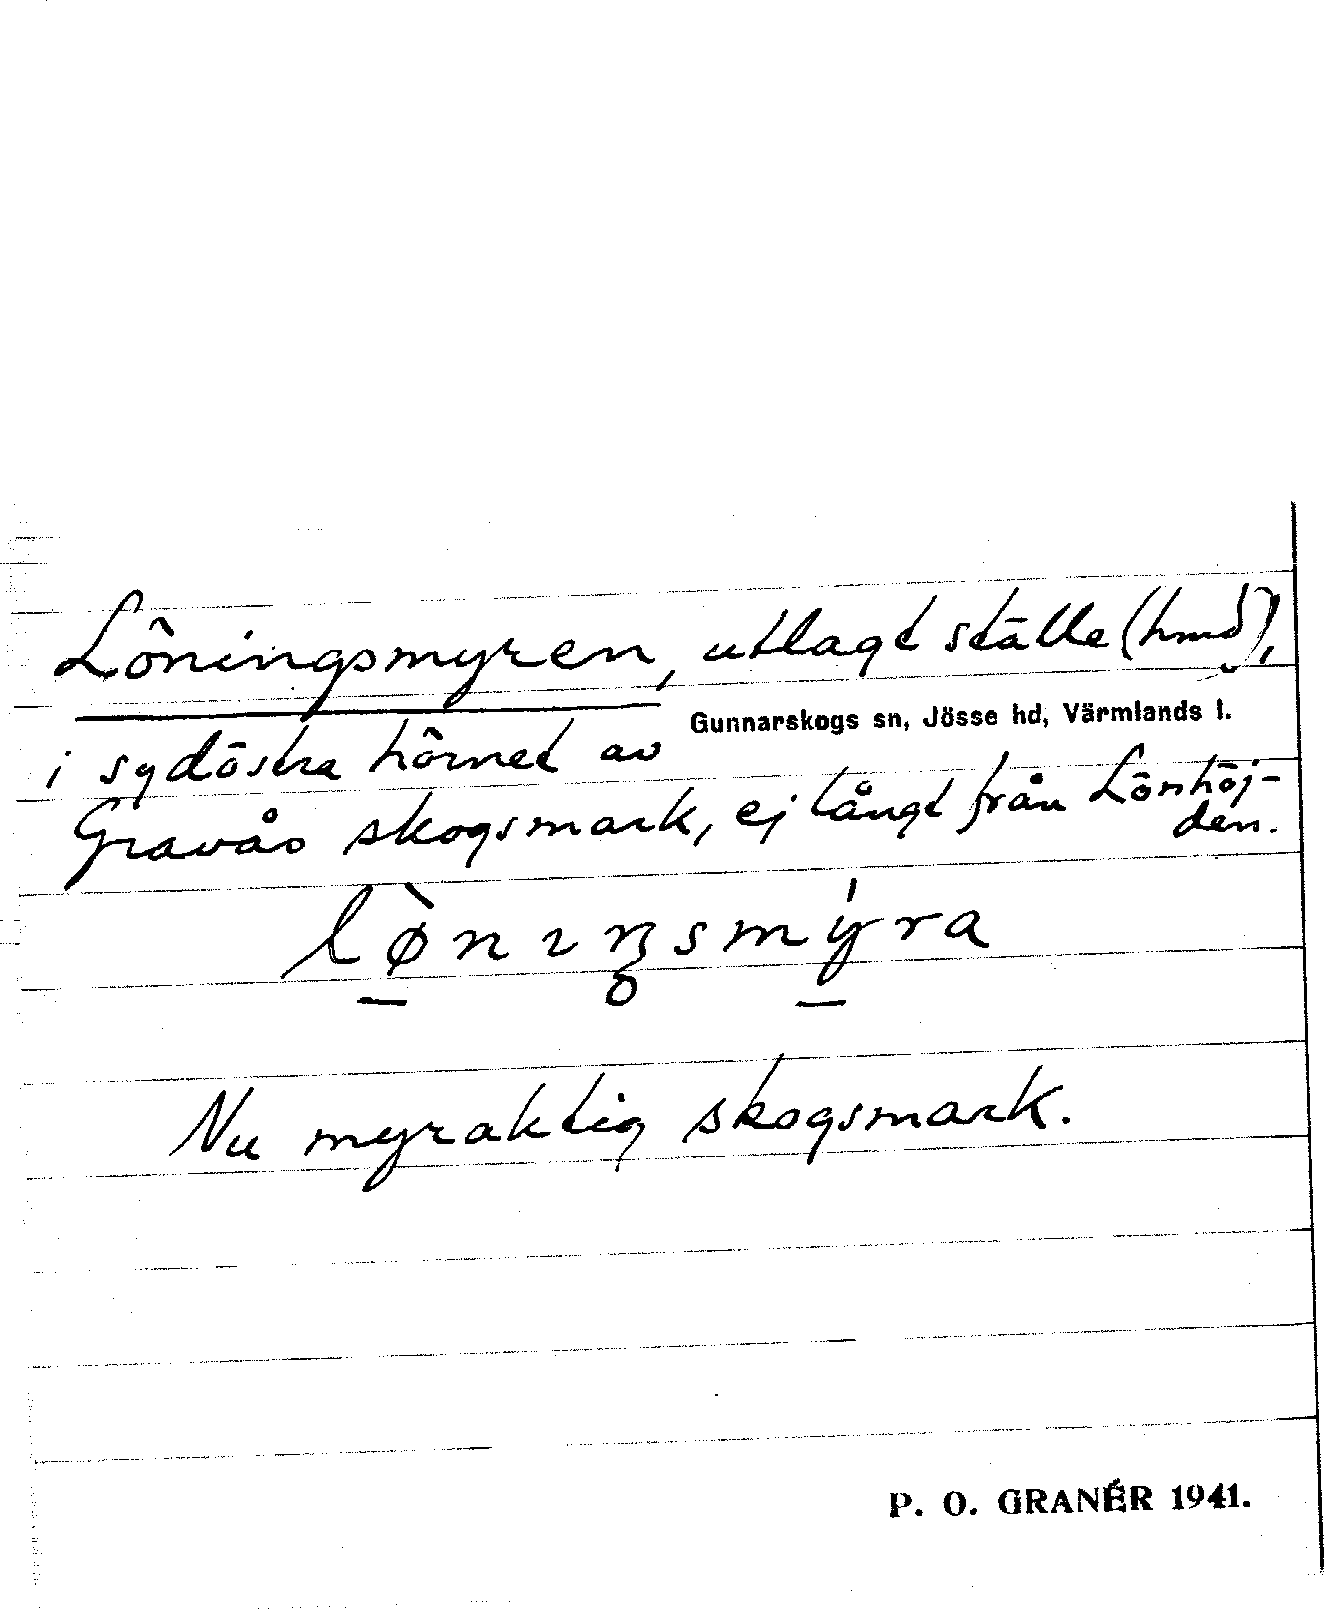 Löningsmyren, utlagt ställe (hmd),
Gunnarskogs sn, Jösse hd, Värmlands l.
i sydöstra hörnet av
Gravås skogsmark, ej långt från Lönhöj-
den.
lø̀nıŋsmýra
Nu myraktig skogsmark.
P. O. GRANÉR 1941.